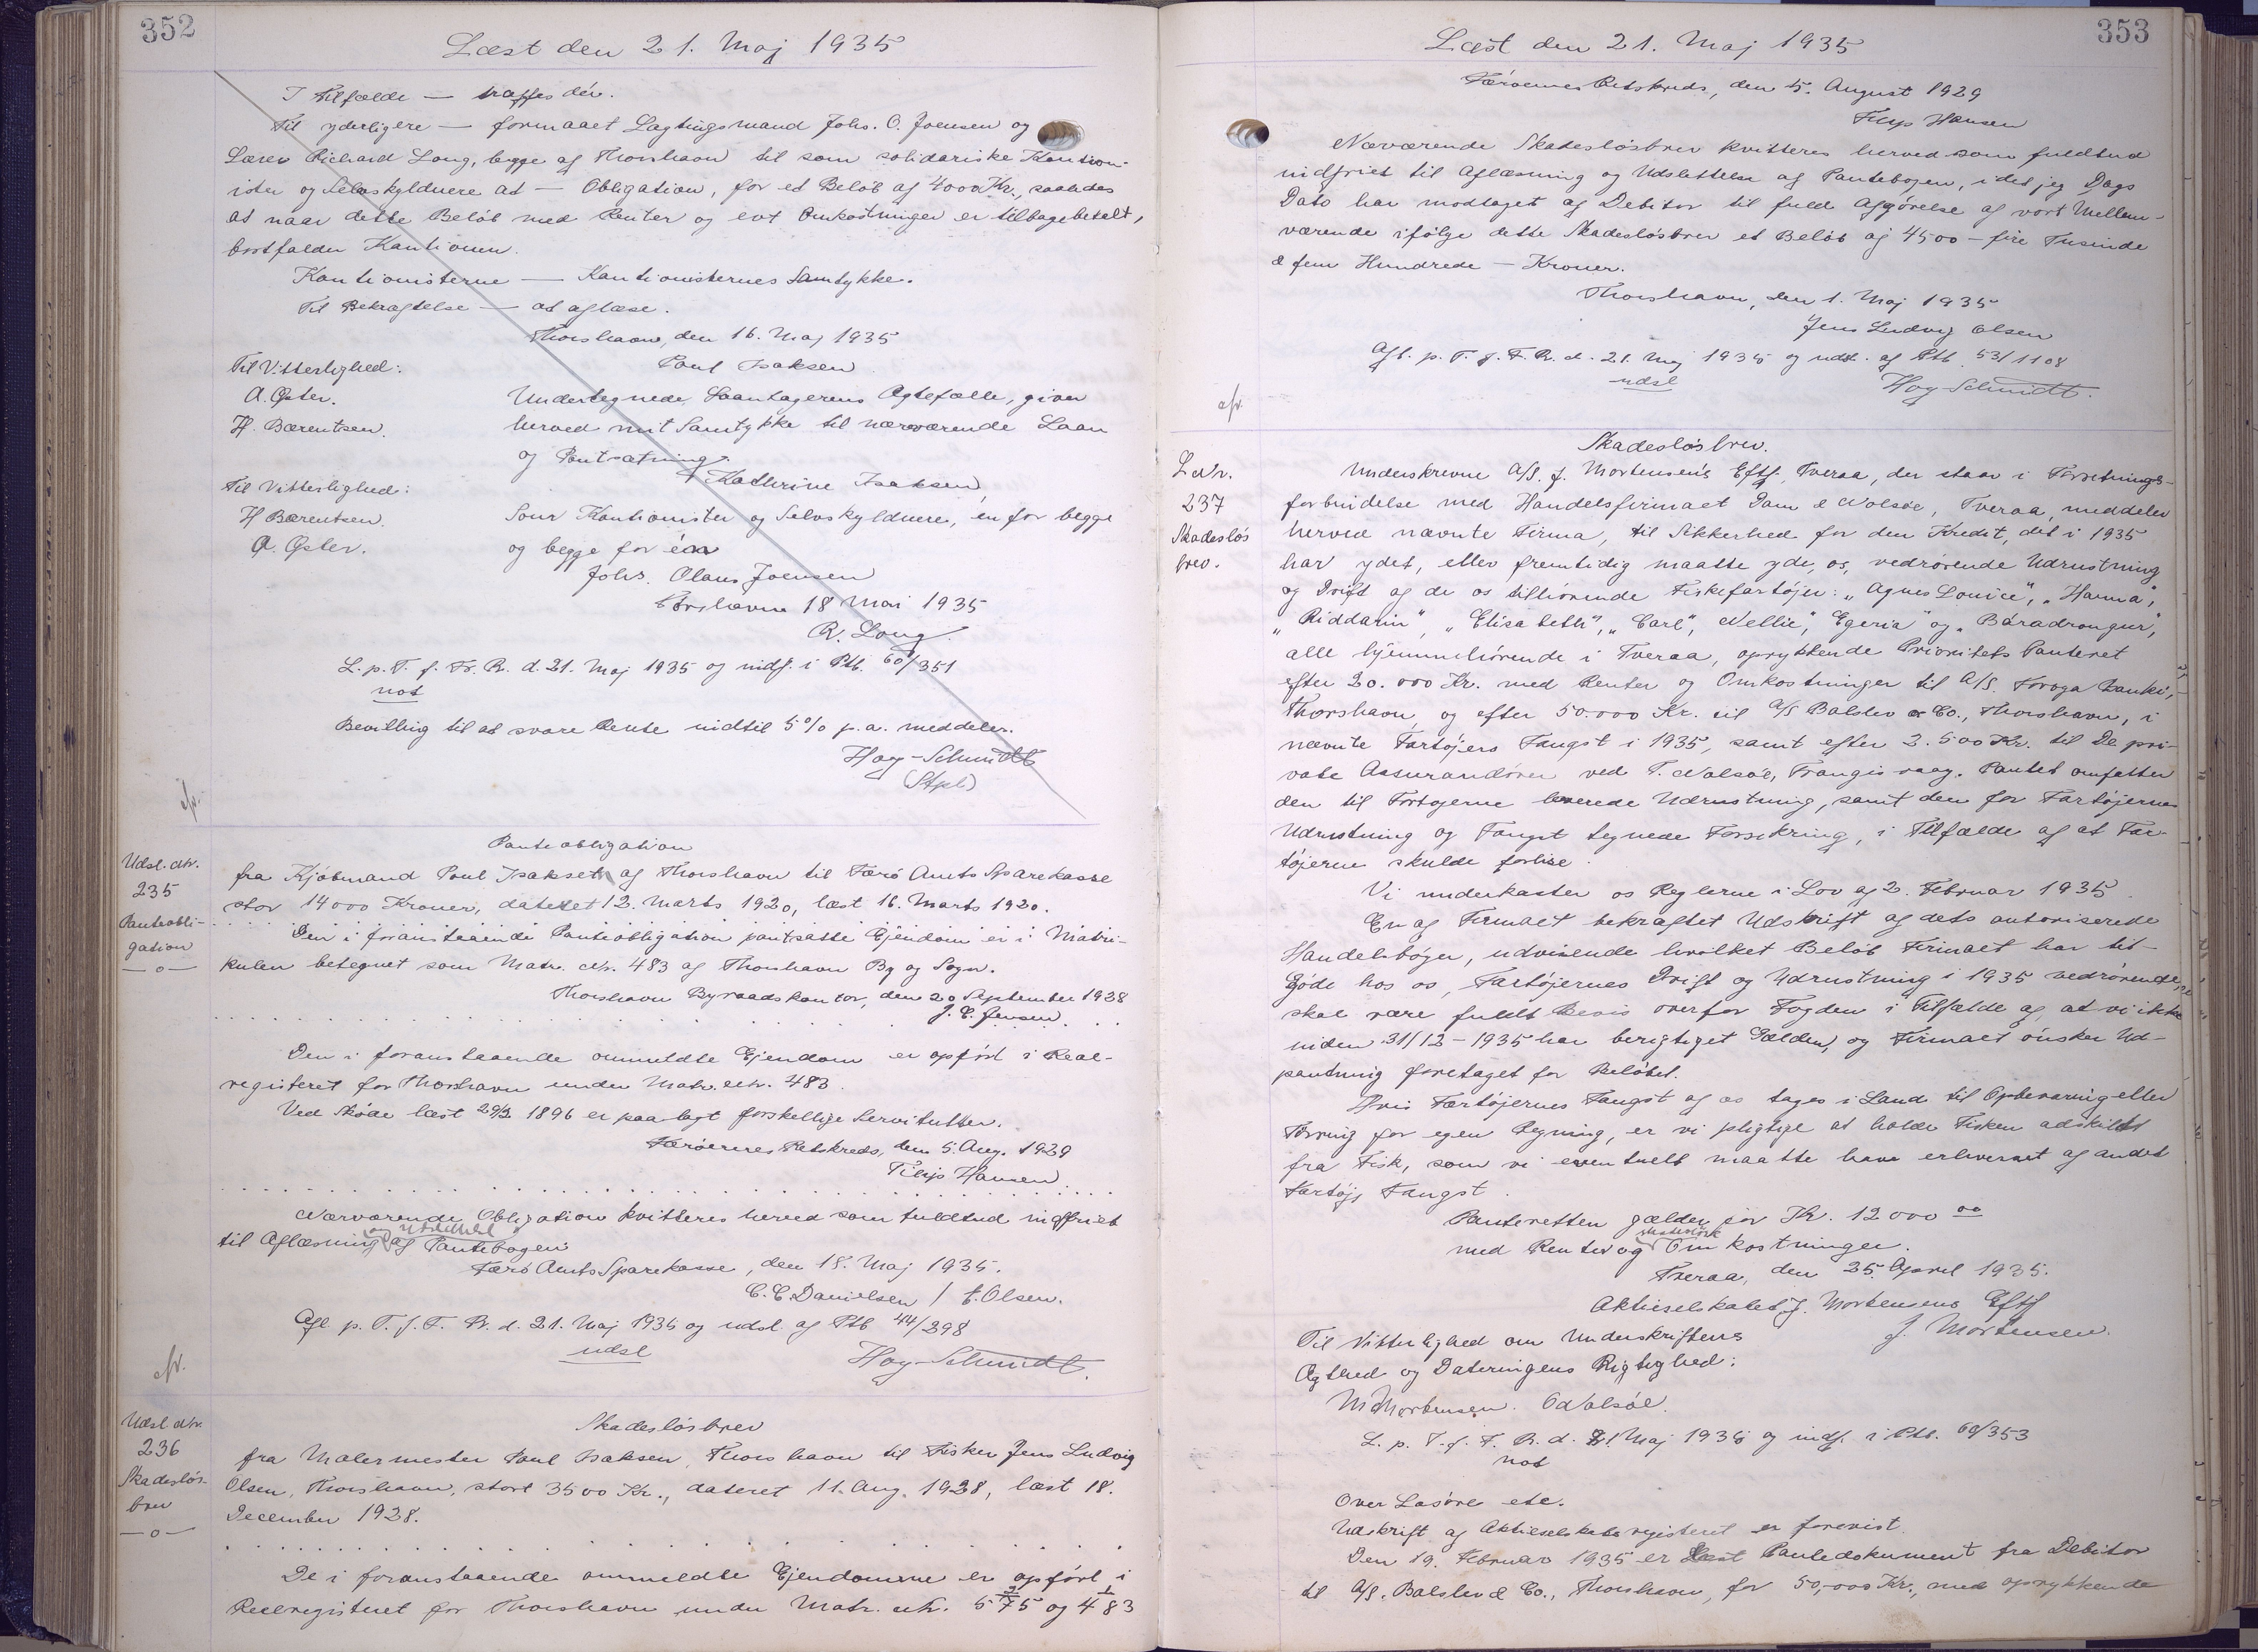 352
Læst den 21. Maj 1935
I Tilfælde — træffes dér.
Til yderligere — formaaet Lagtingsmand Johs. O. Joensen og
Lærer Richard Long, begge af Thorshavn til som solidariske Kaution-
ister og Selvskyldnere at — Obligation, for et Beløb af 4000 Kr., saaledes
at naar dette Beløb med Renter og evt Omkostninger er tilbagebetalt,
bortfalder Kautionen.
Kautionisterne — Kautionisternes Samtykke.
Til Bekræftelse — at aflæse.
Thorshavn, den 16. Maj 1935
Til Vitterlighed: Poul Isaksen
A. Øster. Undertegnede, Laantagerens Ægtefælle, giver
H. Bærentsen. herved mit Samtykke til nærværende Laan
og Pantsætning.
Kathrine Isaksen
Til Vitterlighed:
H Bærentsen. Som Kautionister og Selvskyldnere, en for begge
A. Øster. og begge for én
Johs. Olaus Joensen
Tórshavn 18 Mai 1935
R. Long
L. p. T. f. Fr. R. d. 21. Maj 1935 og indf. i Ptb. 60/351
not
Bevilling til at svare Rente indtil 5% p.a. meddeles.
Høy-Schmidt
(Stpl)
Udsl. Nr.
235
Panteobli-
gation
—o—
Panteobligation
fra Kjøbmand Poul Isaksen af Thorshavn til Færø Amts Sparekasse
stor 14000 Kroner, dateret 12. Marts 1920, læst 16. Marts 1920.
Den i foranstaaende Panteobligation pantsatte Ejendom er i Matri-
kulen betegnet som Matr. Nr. 483 af Thorshavn By og Sogn.
Thorshavn Byraadskontor, den 20 September 1928
J. C. Jensen.
Den i foranstaaende ommeldte Ejendom er opført i Real-
registeret for Thorshavn under Matr. Nr. 483.
Ved Skøde læst 29/2 1896 er paalagt forskellige Servitutter.
Færøernes Retskreds, den 5. Aug. 1929
Filip Hansen
Nærværende Obligation kvitteres herved som fuldtud indfriet
til Aflæsning og Udslettelse af Pantebogen
Færø Amts Sparekasse, den 18. Maj 1935.
C. C. Danielsen / E. Olsen.
Afl. p. T. f. F. R. d. 21. Maj 1935 og udsl. af Ptb 44/298
udsl
Høy-Schmidt.
Udsl Nr.
236
Skadesløs-
brev
—o—
Skadesløsbrev
fra Malermester Poul Isaksen, Thorshavn til Fisker Jens Ludvig
Olsen, Thorshavn, stort 3500 Kr., dateret 11. Aug. 1928, læst 18.
December 1928.
De i foranstaaende ommeldte Ejendomme er opført i
Realregisteret for Thorshavn under Matr. Nr. 575 og 483
353
Læst den 21. Maj 1935
Færøernes Retskreds, den 5. August 1929
Filip Hansen
Nærværende Skadesløsbrev kvitteres herved som fuldtud
indfriet til Aflæsning og Udslettelse af Pantebogen, idet jeg Dags
Dato har modtaget af Debitor til fuld Afgørelse af vort Mellem-
værende ifølge dette Skadesløsbrev et Beløb af 4500 – fire Tusinde
& fem Hundrede – Kroner.
Thorshavn, den 1. Maj 1935
Jens Ludvig Olsen
Afl. p. T. f. F. R. d. 21. Maj 1935 og udsl. af Ptb. 53/1108
udsl
Høy-Schmidt.
L Nr.
237
Skadesløs
brev.
Skadesløsbrev.
Underskrevne A/S. J. Mortensen's Eftf, Tveraa, der staar i Forretnings-
forbindelse med Handelsfirmaet Dam & Nolsøe, Tveraa, meddeler
herved nævnte Firma, til Sikkerhed for den Kredit, det i 1935
har ydet, eller fremtidig maatte yde, os, vedrørende Udrustning
og Drift af de os tilhørende Fiskefartøjer: „Agnes Louise", „Hanna",
„Riddarin", „Elisabeth", „Carl", Nellie", Egeria" og „Báradrongur",
alle hjemmehørende i Tveraa, oprykkende Prioritets Panteret
efter 20.000 Kr. med Renter og Omkostninger til A/S. Føroya Banki,
Thorshavn, og efter 50.000 Kr. til A/S Balslev & Co., Thorshavn, i
nævnte Fartøjers Fangst i 1935, samt efter 2.500 Kr. til De pri-
vate Assurandører ved T. Nolsøe, Frangisvaag. Pantet omfatter
den til Fartøjerne leverede Udrustning, samt den for Fartøjernes
Udrustning og Fangst tegnede Forsikring, i Tilfælde af at Far-
tøjerne skulde forlise.
Vi underkaster os Reglerne i Lov af 2. Februar 1935.
En af Firmaet bekræftet Udskrift af dets autoriserede
Handelsbøger, udvisende hvilket Beløb Firmaet har til-
gode hos os, Fartøjernes Drift og Udrustning i 1935 vedrørende,
skal være fuldt Bevis overfor Fogden i Tilfælde af, at vi ikke
inden 31/12 – 1935 har berigtiget Gælden, og Firmaet ønsker Ud-
pantning foretaget for Beløbet.
Hvis Fartøjernes Fangst af os tages i Land til Opbevaring eller
Tørring for egen Regning, er vi pligtige at holde Fisken adskildt
fra Fisk, som vi eventuelt maatte have erhvervet af andet
Fartøjs Fangst.
Panteretten gælder for Kr. 12000 00
med Renter og skadesløse Omkostninger.
Tveraa, den 25. April 1935.
Aktieselskabet J. Mortensens Eftf
J. Mortensen.
Til Vitterlighed om Underskriftens
Ægthed og Dateringens Rigtighed:
M Mortensen. O Nolsøe.
L. p. T. f. F. R. d. 21 Maj 1935 og indf. i Ptb. 60/353
not
Over Løsøre etc.
Udskrift af Aktieselskabsregisteret er forevist.
Den 19. Februar 1935 er læst Pantedokument fra Debitor
til A/S. Balslev & Co., Thorshavn, for 50,000 Kr., med oprykkende